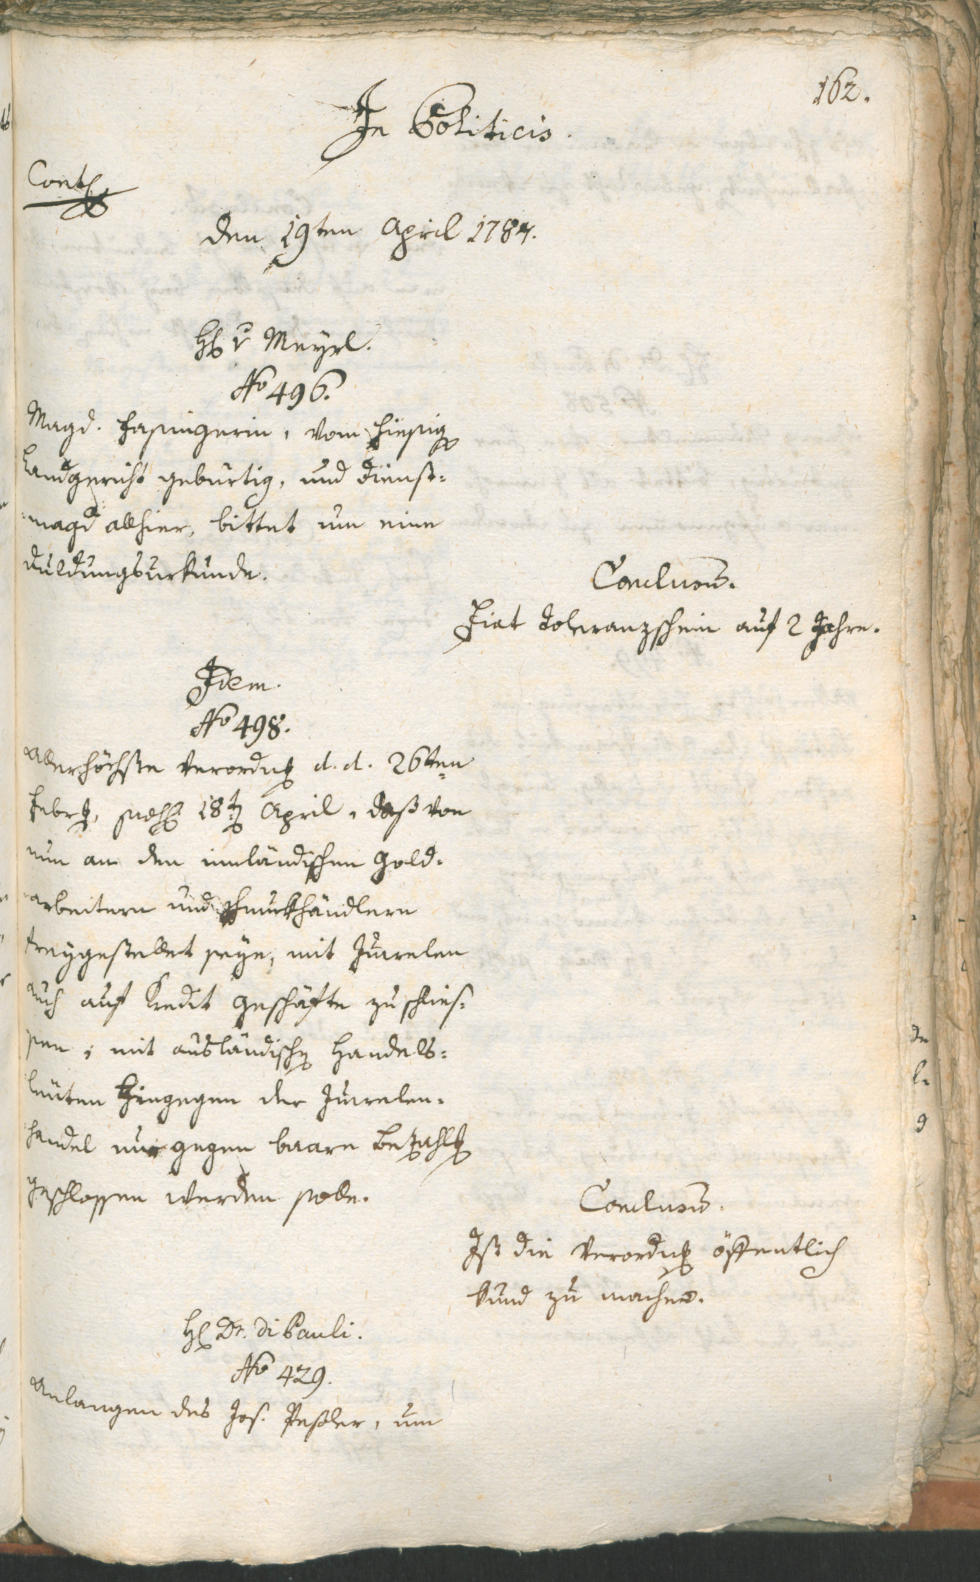 162.
In Politicis.
Cont.
den 19ten April 1784.
H v Meyrl.
No 496.
Magd. Hasingerin, vom hiesig
Landgericht gebürtig, und Dienst-
magd allhier, bittet um eine
Duldungsurkunde.
Conclusum.
Fiat Toleranzschein auf 2 Jahre.
Idem.
No 498.
Allerhöchste Verordng d. d. 26ten
Febr, 18t April, daß von
nun an den innländischen Gold-
arbeitern und Schmukhändlern
freygestellet seye, mit Juwelen
auch auf Kredit Geschäfte zu schlies-
sen; mit ausländischen Handels-
leuten hingegen der Juwelen-
handel nur gegen baare Bezahlg
geschlossen werden solle.
Conclusum.
Ist die Verordng öffentlich
kund zu machen.
H Dr. Di Pauli.
No 429.
Anlangen des Jos. Peßler, um